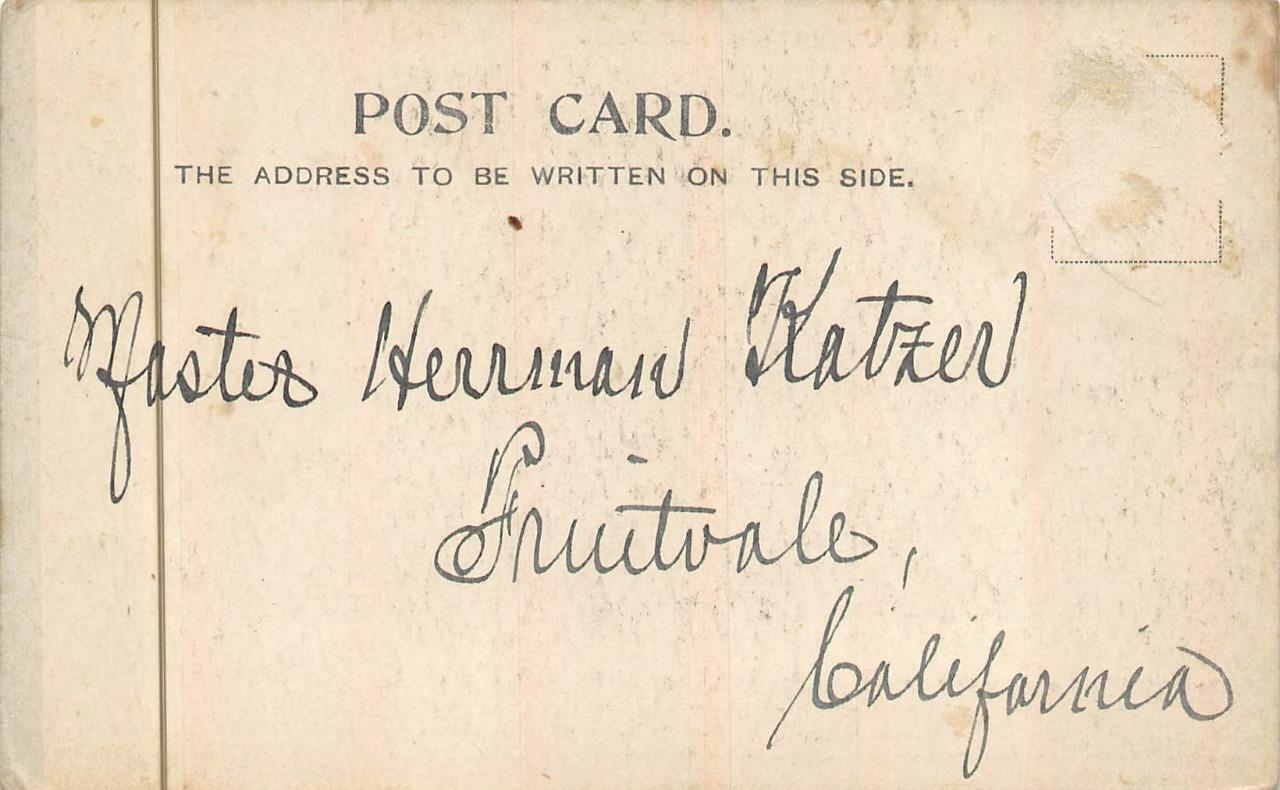 POST CARD.
THE ADDRESS TO BE WRITTEN ON THIS SIDE.
Master Herrman Katzer
Fruitvale,
California